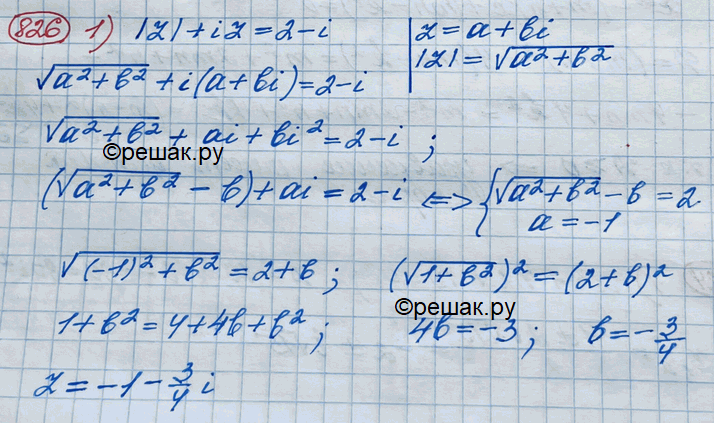 826 1) |z| + iz = 2 - i | z = a + bi
√(a² + b²) + i(a + bi) = 2 - i | |z| = √(a² + b²)
√(a² + b²) + ai + bi² = 2 - i ;
©решак.ру
(√(a² + b²) - b) + ai = 2 - i <=> { √(a² + b²) - b = 2
a = -1
√((-1)² + b²) = 2 + b ; (√(1 + b²))² = (2 + b)²
©решак.ру
1 + b² = 4 + 4b + b² ; 4b = -3 ; b = -3/4
z = -1 - 3/4 i